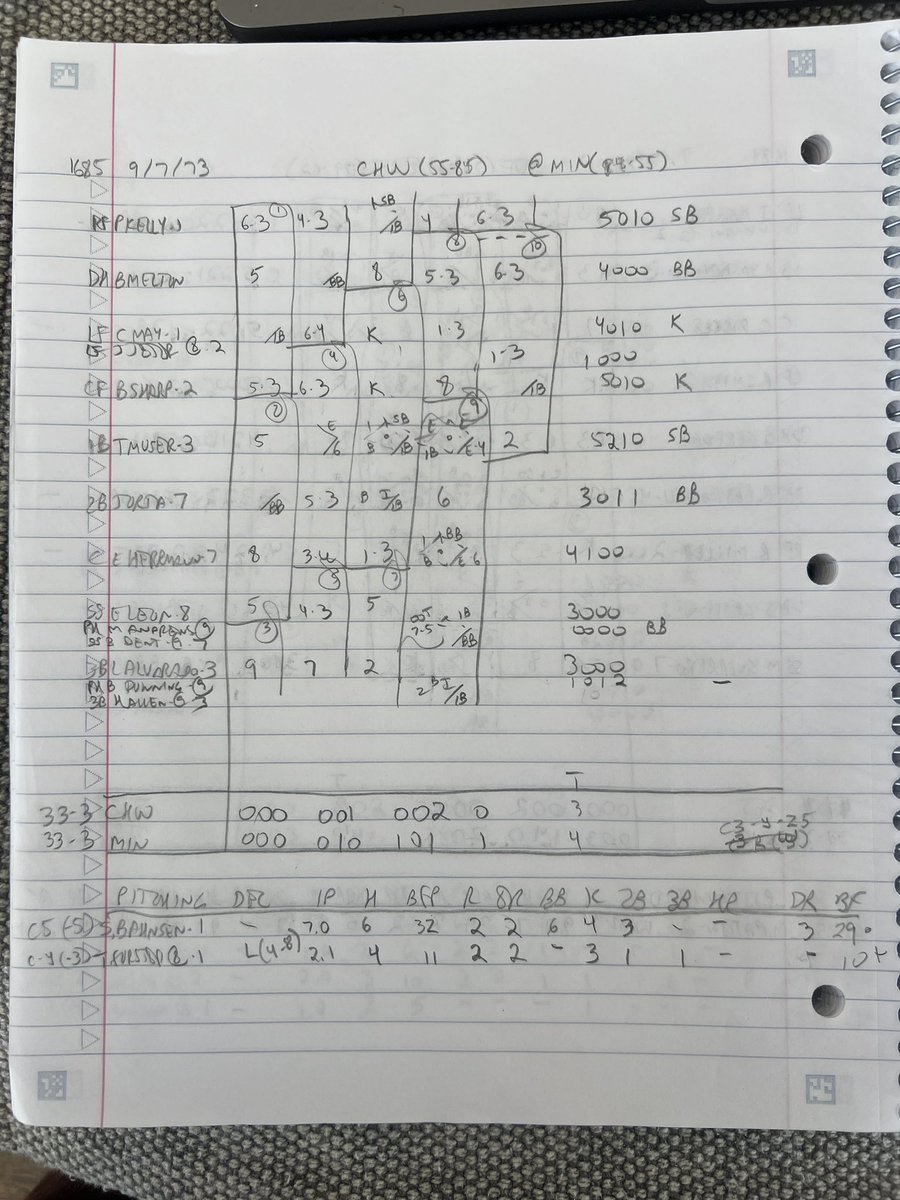 1685 9/7/73 CHW (55-85) @ MIN (
RF P KELLY 9 6.3 ① 4.3 1 SB /1B 4 6.3 5010 SB
⑧ ⑩
DH B MELTON 5 /BB 8 5.3 6.3 4000 BB
⑥
LF C MAY-1 /1B 6.4 K 1.3 4010 K
⑧-2 ④ 1-3 1000
CF B SHARP-2 5.3 6.3 K 8 /1B 5010 K
② ⑨
1B T MUSER-3 5 E/6 1 SB /1B 1B /E-4 2 5210 SB
2B J ORTA-7 /BB 5.3 B I/1B 6 3011 BB
C E HERRMANN-7 8 3.4 1.3 1 BB B /E6 4100
⑤ ⑦
SS E LEON-8 5 4.3 5 1B /BB 3000
PH M ANDREWS ⑨ ③ 0000 BB
SS B DENT
3B L ALVARADO-3 9 7 2 3000
PH B DUNNING ⑨ 2 B I/1B 1012 —
3B H ALLEN
T
33-3 CHW 000 001 002 0 3
33-3 MIN 000 010 101 1 4 C3-Y-25
PITCHING DEC IP H BFP R ER BB K 2B 3B HP DR BF
C5 (-5) S. BAHNSEN-1 - 7.0 6 32 2 2 6 4 3 - - 3 29
C-4 (-3) FORSTER 8-1 L(4-8) 2.1 4 11 2 2 - 3 1 1 - - 10+